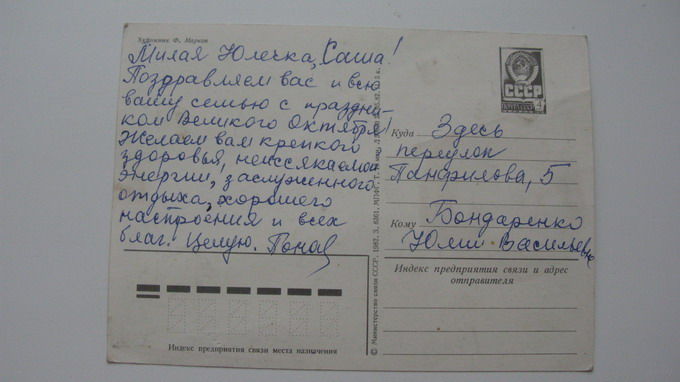 Художник Ф. Марков
Милая Юлечка, Саша!
Поздравляем вас и всю
вашу семью с праздни-
ком Великого Октября!
Желаем вам крепкого
здоровья, неиссякаемой
энергии, заслуженного
отдыха, хорошего
настроения и всех
благ. Целую.
СССР
Куда Здесь
переулок
Панфилова, 5
Кому Бондаренко
Юлии Васильевне
Индекс предприятия связи и адрес
отправителя
Индекс предприятия связи места назначения
© Министерство связи СССР, 1982.